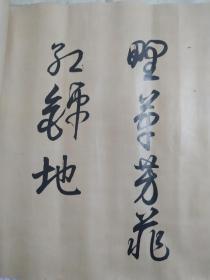 野草芳菲
红锦地